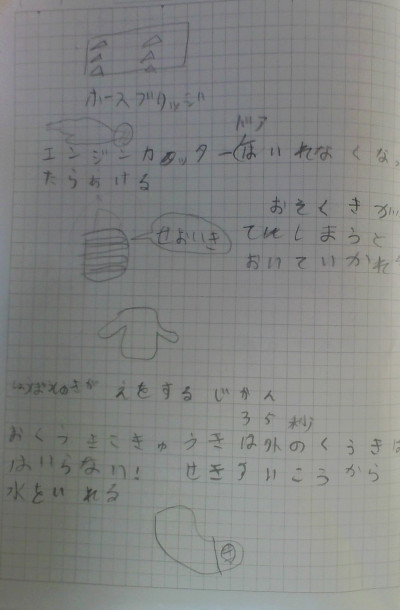 ホースブリッジ
ドア
エンジンカッター(はいれなくなっ
たらあける
おそくきが
せおいき てしまうと
おいていかれ
きがえをするじかん
35秒
おくうきこきゅうきは外のくうきは
はいらない! せきすいこうから
水をいれる